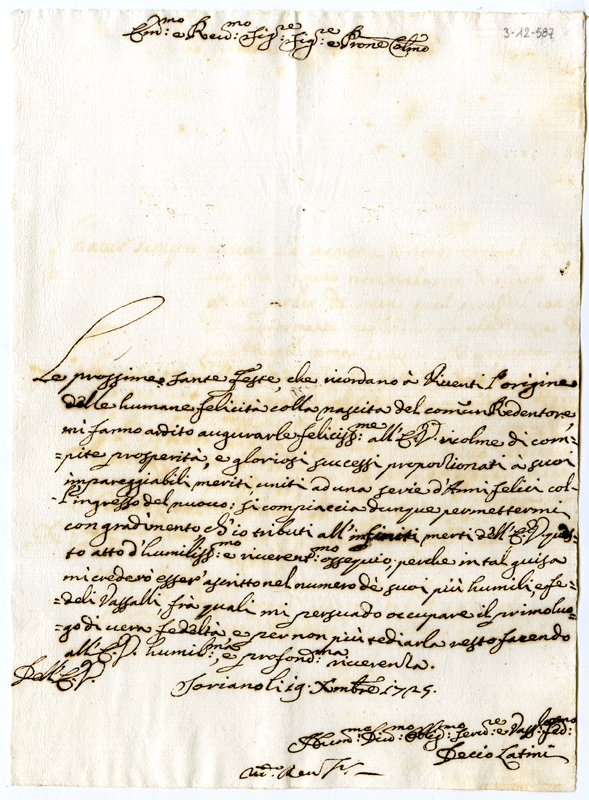 3-12-587
Em.mo e Rev.mo Sig.re Sig.re e Prone Col.mo
Le prossime sante feste, che ricordano à Viventi l'origine
delle humane felicità colla nascita del comun Redentore,
mi fanno ardito augurarle feliciss.me all'E.V. ricolme di com=
=pite prosperità, e gloriosi successi proporzionati à suoi
impareggiabili meriti uniti ad una serie d'Anni felici col=
=l'ingresso del nuovo; si compiaccia dunque permettermi
con gradimento ch'io tributi all'infiniti merti dell'E.V. ques=
=to atto d'humiliss.mo e riverent.mo ossequio, perche in tal guisa
mi crederò esser ascritto nel numero de suoi più humili, e fe=
=deli Vassalli, frà quali mi persuado occupare il primo luo=
=go di vera fedeltà, e per non più tediarla resto facendo
all'E.V. humil.ma, e profond.ma riverenza.
Dell'E.V.
Toriano li 19. Xmbre 1725.
Hum.mo Div.mo Oblig.mo Serv.re e Vass.
Decio Latini